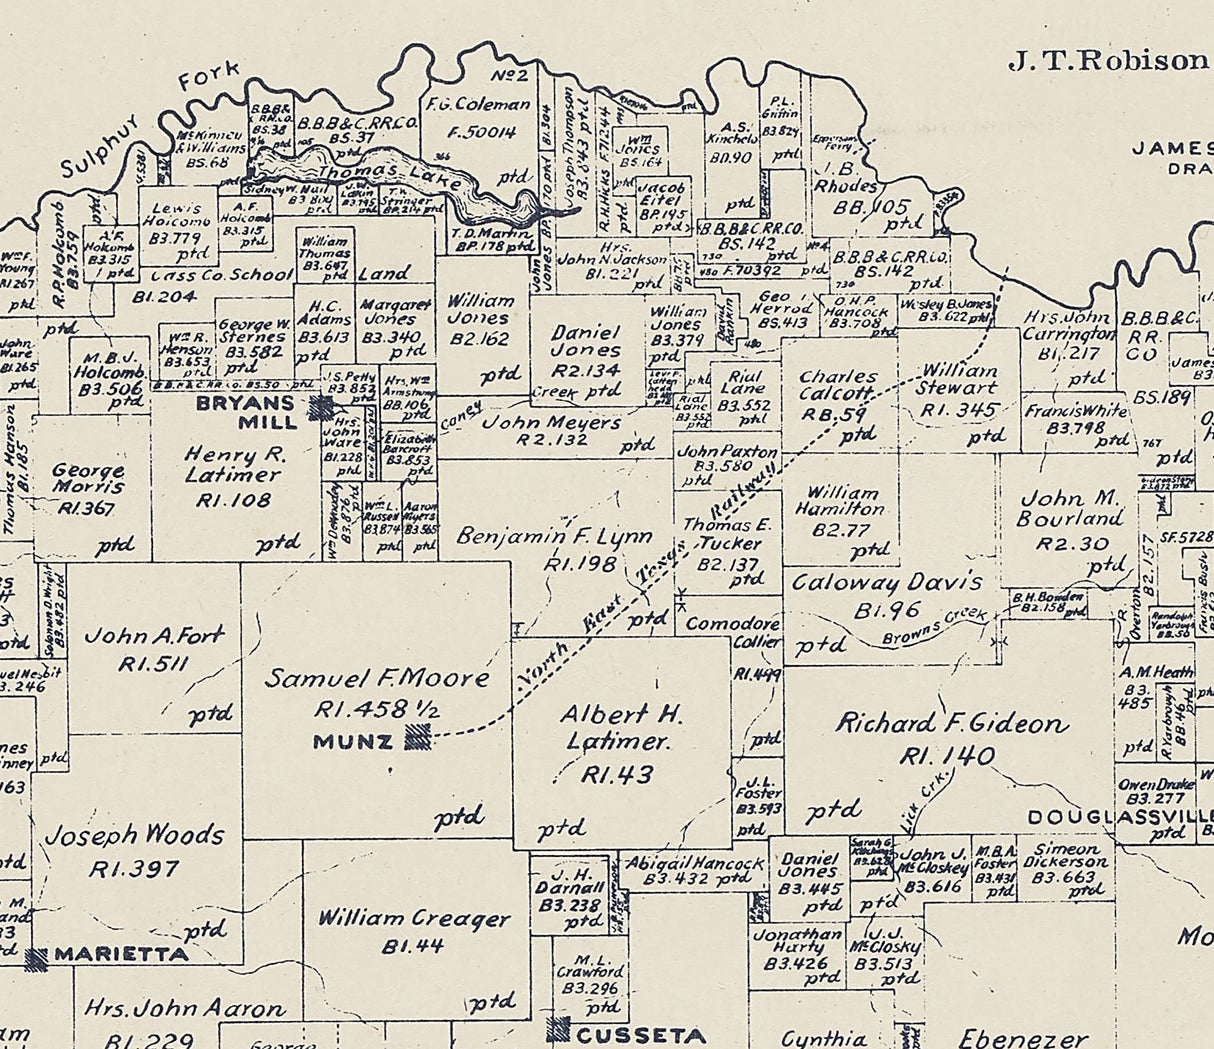 J.T.Robison
Sulphur Fork
JAMES
DRA
No2
F.G. Coleman
F.50014
366
ptd
B.B.B&
C.RR.CO.
BS.38
B.B.B.& C.RR.CO.
BS.37
ptd
McKinney
& Williams
BS.68
Thomas Lake
Joseph Thompson
B3.843 ptd
R.H. Hicks F.71244
ptd
Wm
Jones
BS.164
Jacob
Eitel
BP.195
ptd
A.S.
Kinchelo
BD.90
ptd
P.L.
Griffin
B3.829
ptd
J.B.
Rhodes
BB.105
ptd
Lewis
Holcomb
B3.779
ptd
A.F.
Holcomb
B3.315
ptd
Sidney W. Nail
B3 804
ptd
T.W.
Stringer
BP.214 ptd
T.D. Martin
BP.178 ptd
R.P. Holcomb
B3.759
ptd
A.F.
Holcomb
B3.315
ptd
William
Thomas
B3.647
ptd
Cass Co. School Land
B1.204
Wm F.
Young
B1.267
ptd
Hrs.
John N. Jackson
B1.221
B.B.B.& C.RR.CO.
BS.142
730
480 F.70392 ptd
No4
B.B.B.& C.RR.CO.
BS.142
730
William
Jones
B2.162
ptd
H.C.
Adams
B3.613
ptd
Margaret
Jones
B3.340
ptd
George W.
Sternes
B3.582
ptd
Wm R.
Henson
B3.653
ptd
M.B.J.
Holcomb
B3.506
ptd
John
Ware
B1.265
ptd
B.B.B.& C RR CO. BS.50 ptd
BRYANS
MILL
J.S. Petty
B3.853
ptd
Hrs. Wm
Armstrong
BB.106
ptd
Daniel
Jones
R2.134
ptd
Caney Creek
William
Jones
B3.379
ptd
David
Rankin
480
Geo I.
Herrod
BS.413
O.H.P.
Hancock
B3.708
ptd
Wesley B. Jones
B3.622 ptd
Hrs. John
Carrington
B1.217
ptd
B.B.B.& C.
RR.
CO
BS.189
767
ptd
Rial
Lane
B3.552
ptd
Rial
Lane
B3.552
ptd
Charles
Calcott
RB.59
ptd
William
Stewart
R1.345
ptd
Francis White
B3.798
John Meyers
R2.132
ptd
Thomas Henson
B1.185
George
Morris
R1.367
ptd
Henry R.
Latimer
R1.108
ptd
Hrs.
John
Ware
B1.228
ptd
Elizabeth
Barcroft
B3.853
ptd
Wm Dewoody
B3.876 ptd
Wm L.
Russell
B3.874
ptd
Aaron
Myers
B3.565
ptd
Benjamin F. Lynn
R1.198
ptd
John Paxton
B3.580
ptd
Thomas E.
Tucker
B2.137
ptd
William
Hamilton
B2.77
ptd
John M.
Bourland
R2.30
ptd
SF.5728
B2.157
Overton
North East Texas Railway
Solomon D. Wright
B3.482 ptd
John A. Fort
R1.511
ptd
Samuel F. Moore
R1.458 ½
MUNZ
ptd
Caloway Davis
B1.96
ptd
Browns Creek
B.H. Bowden
B2.158 ptd
Randolph
Yarbrough
BB.50
Comodore
Collier
R1.499
ptd
Albert H.
Latimer.
R1.43
ptd
Richard F. Gideon
R1.140
ptd
Lick Crk.
A.M. Heath
B3.
485
ptd
R. Yarbrough
BB.46
ptd
Owen Drake
B3.277
ptd
DOUGLASSVILLE
J.L.
Foster
B3.593
ptd
Joseph Woods
R1.397
ptd
MARIETTA
William Creager
B1.44
ptd
J.H.
Darnall
B3.238
ptd
Abigail Hancock
B3.432 ptd
Daniel
Jones
B3.445
ptd
John J.
McCloskey
B3.616
ptd
M.B.A.
Foster
B3.431
ptd
Simeon
Dickerson
B3.663
ptd
Jonathan
Harty
B3.426
ptd
J.J.
McClosky
B3.513
ptd
M.L.
Crawford
B3.296
ptd
CUSSETA
Hrs. John Aaron
B1.229
George
Cynthia
Ebenezer
Mo